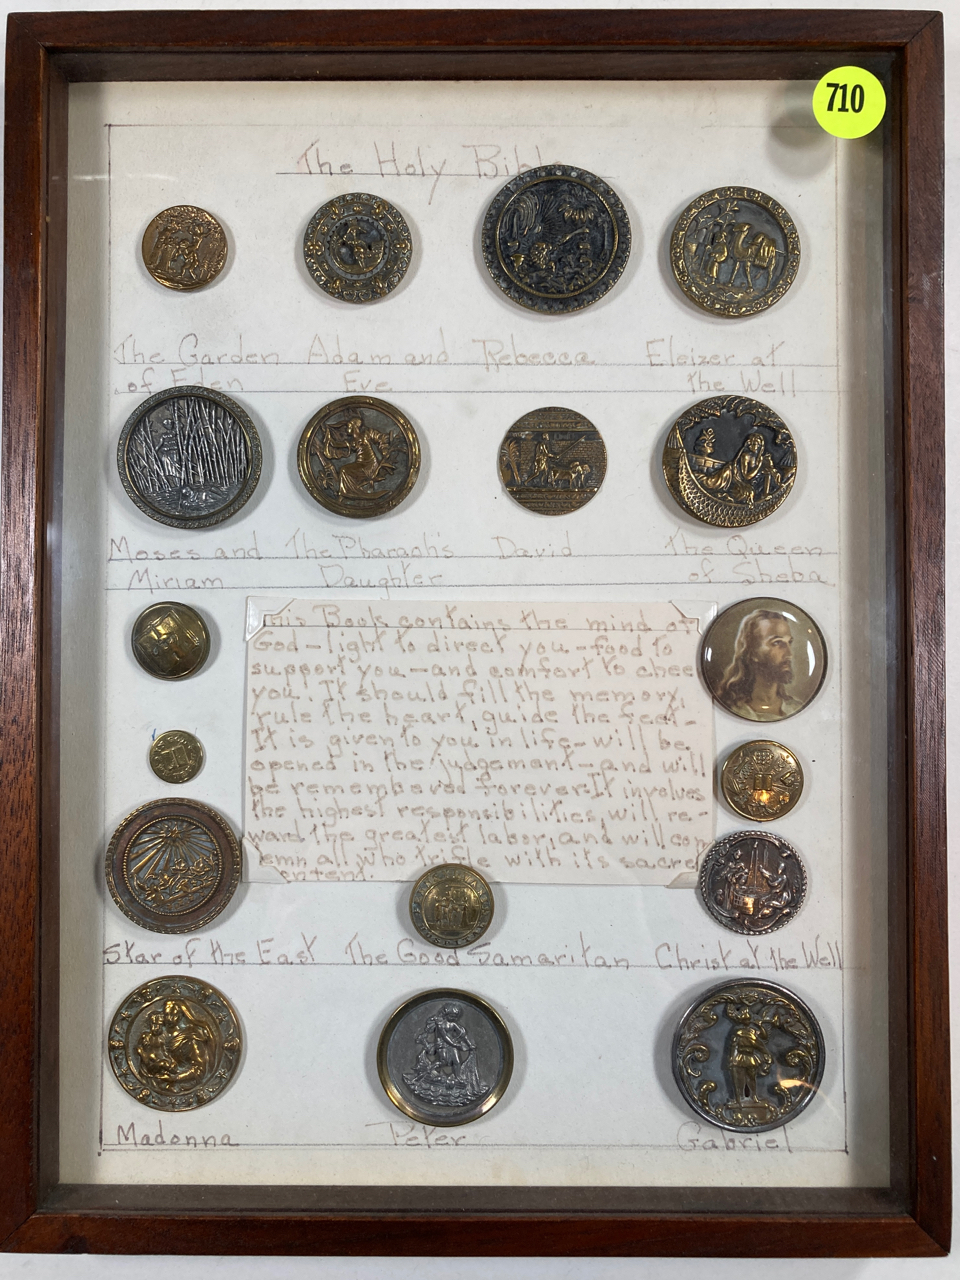 710
The Holy Bible
The Garden Adam and Rebecca Eleizer at
of Eden Eve the Well
Moses and The Pharaoh's David The Queen
Miriam Daughter of Sheba
This Book contains the mind of
God-light to direct you-food to
support you-and comfort to chee
you. It should fill the memory,
rule the heart, guide the feet-
It is given to you in life-will be
opened in the judgement-and will
be remembered forever. It involves
the highest responsibilities, will re-
ward the greatest labor, and will con
emn all who trifle with its sacre
ontent.
Star of the East The Good Samaritan Christ at the Well
Madonna Peter Gabriel